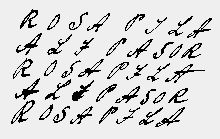 ROSA PILA
ALI PASOR
ROSA PILA
ALI PASOR
ROSA PILA